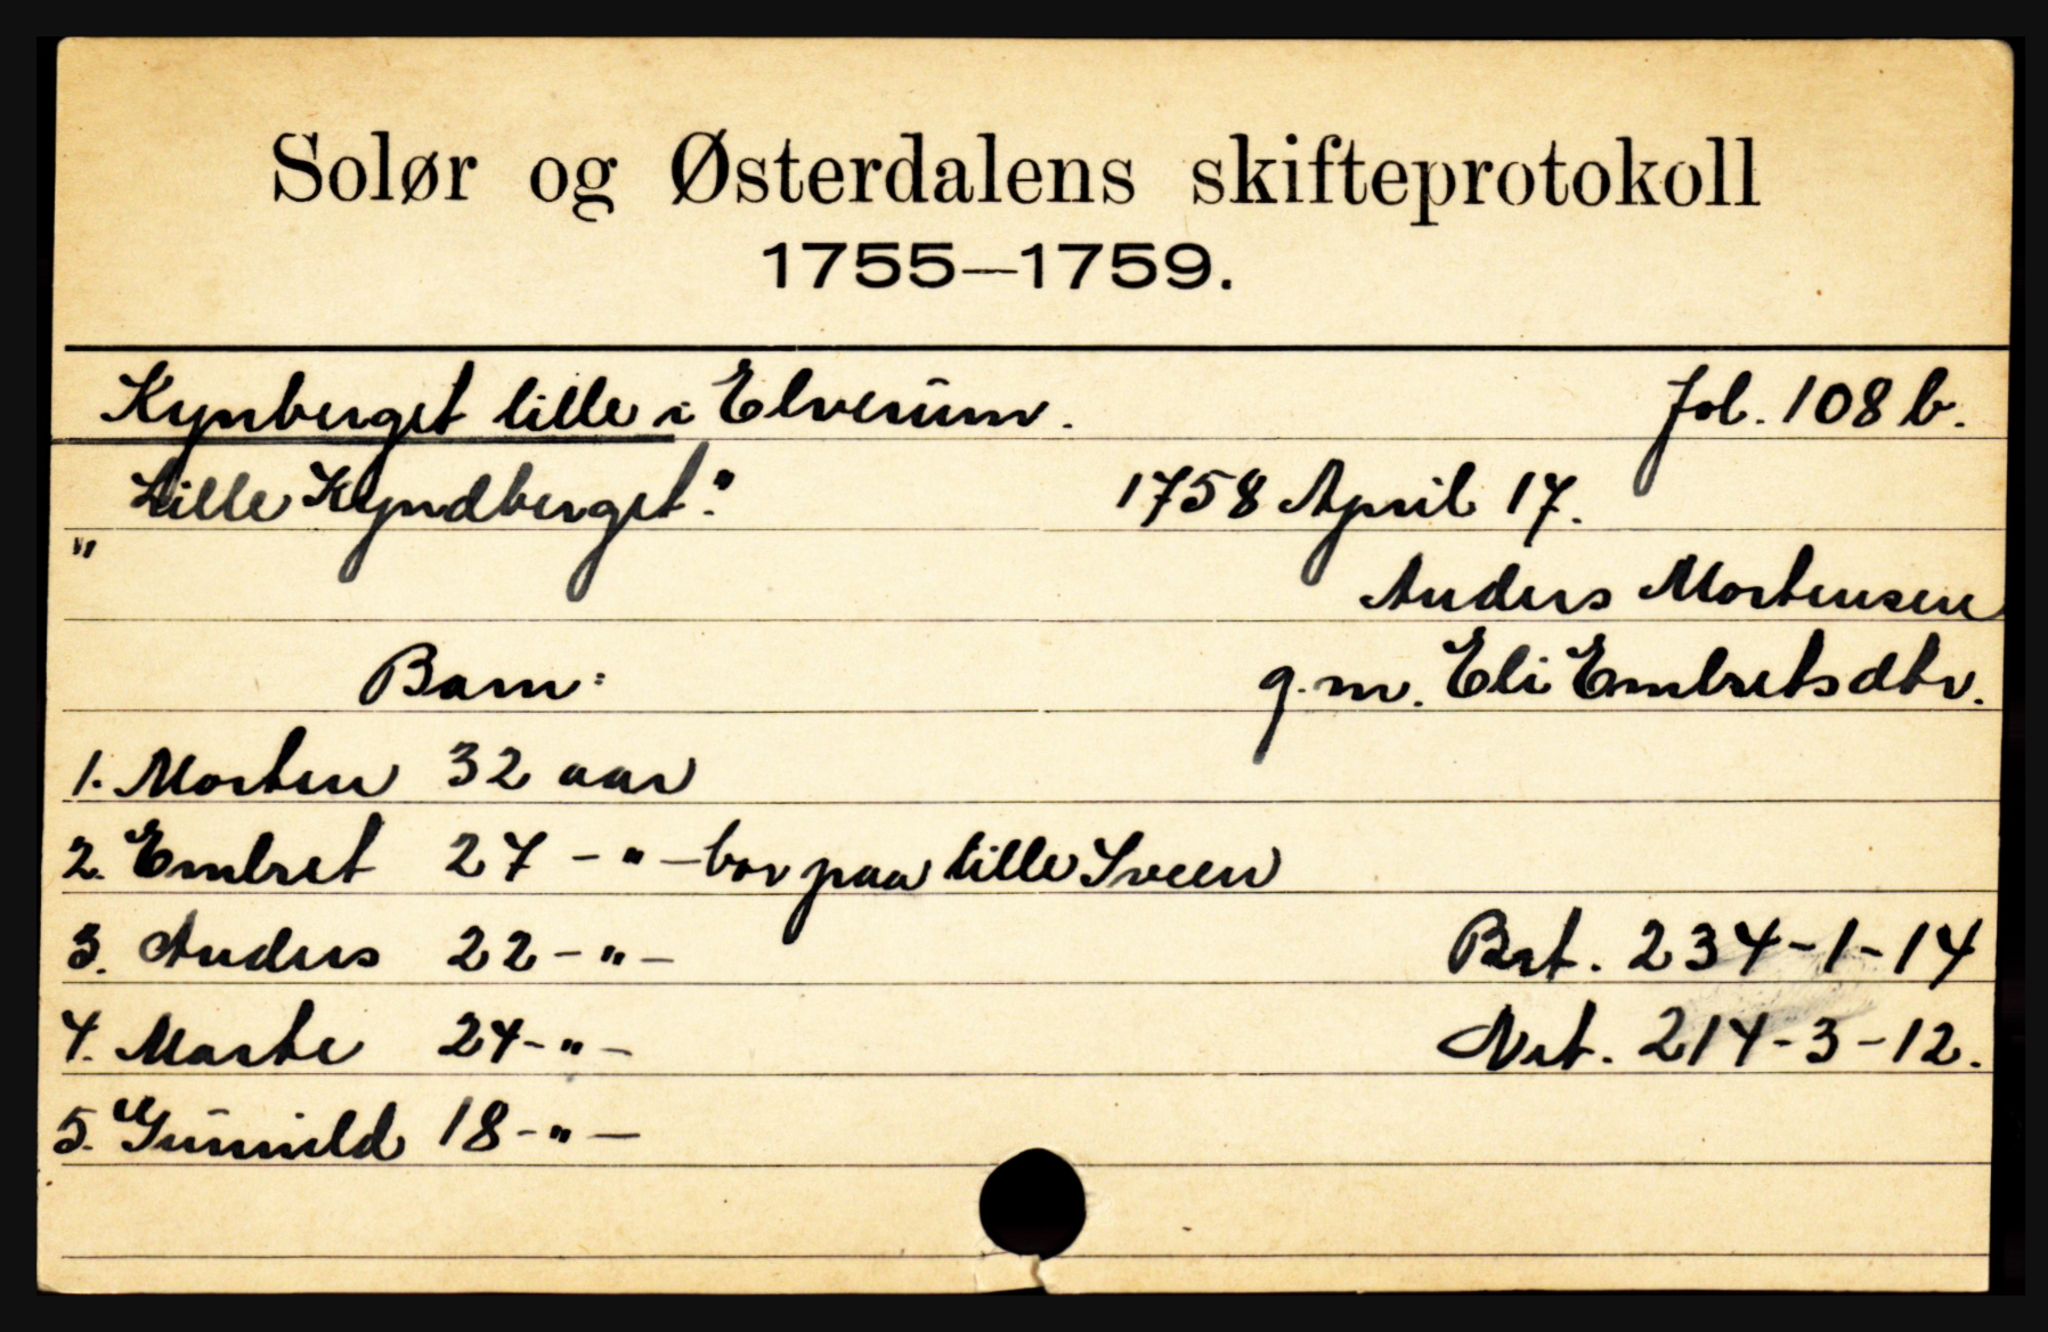 Solør og Østerdalens skifteprotokoll
1755—1759.
Kynberget lille i Elverum. Fol. 108 b.
„Lille Kyndberget." 1758 April 17.
Anders Mortensen
Barn: g.m. Eli Embretsdtr.
1. Morten 32 aar
2. Embret 27 - " - bor paa lille Sveen
3. Anders 22 - " - Brt. 234-1-14
4. Marte 24 - " - Nrt. 214-3-12.
5. Gunnild 18 - " -